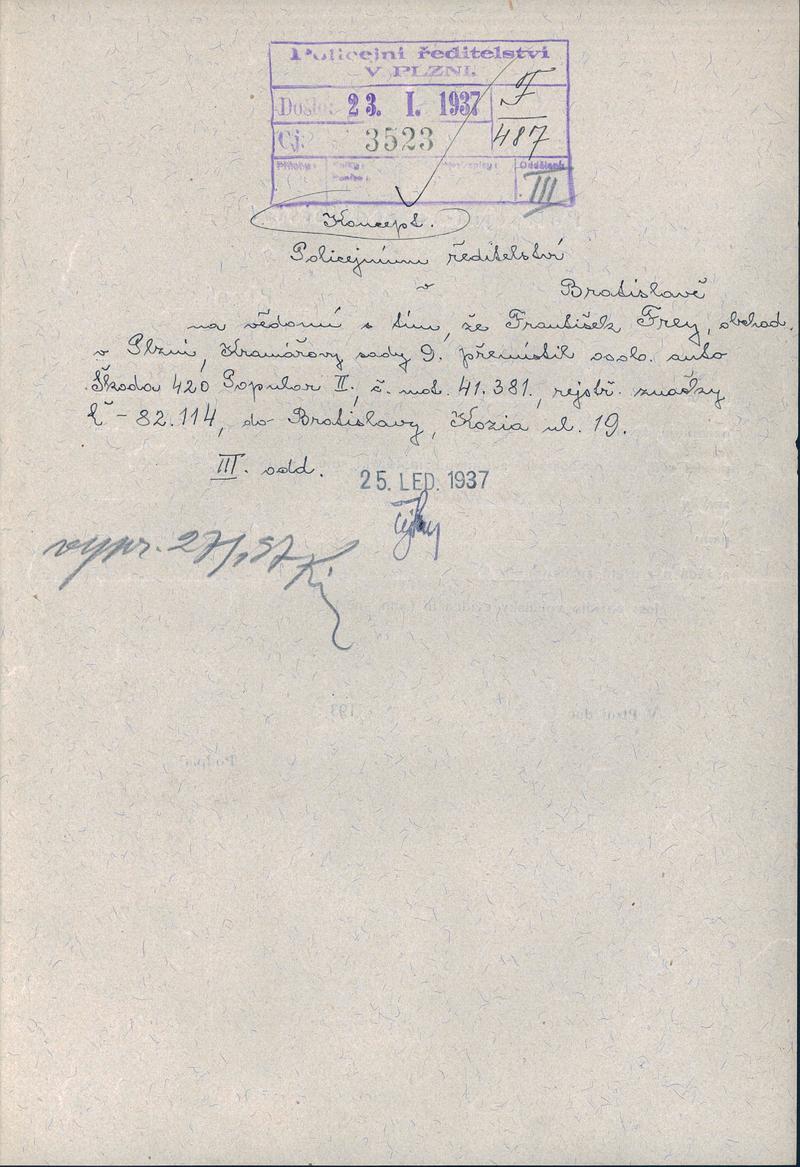 Policejní ředitelství
V PLZNI.
Došlo: 23. I. 1937
F
487
Čj. 3523
Přílohy:
III
Koncept.
Policejnímu ředitelství
v Bratislavě
na vědomí s tím, že František Frey, obchod.
v Plzni, Kramářovy sady 9. přemístil osob. auto
Škoda 420 Popular II., č. mot. 41.381., rejstř. značky
Č - 82.114, do Bratislavy, Kozia ul. 19.
III. odd.
25. LED. 1937
vypr. 27/1 37